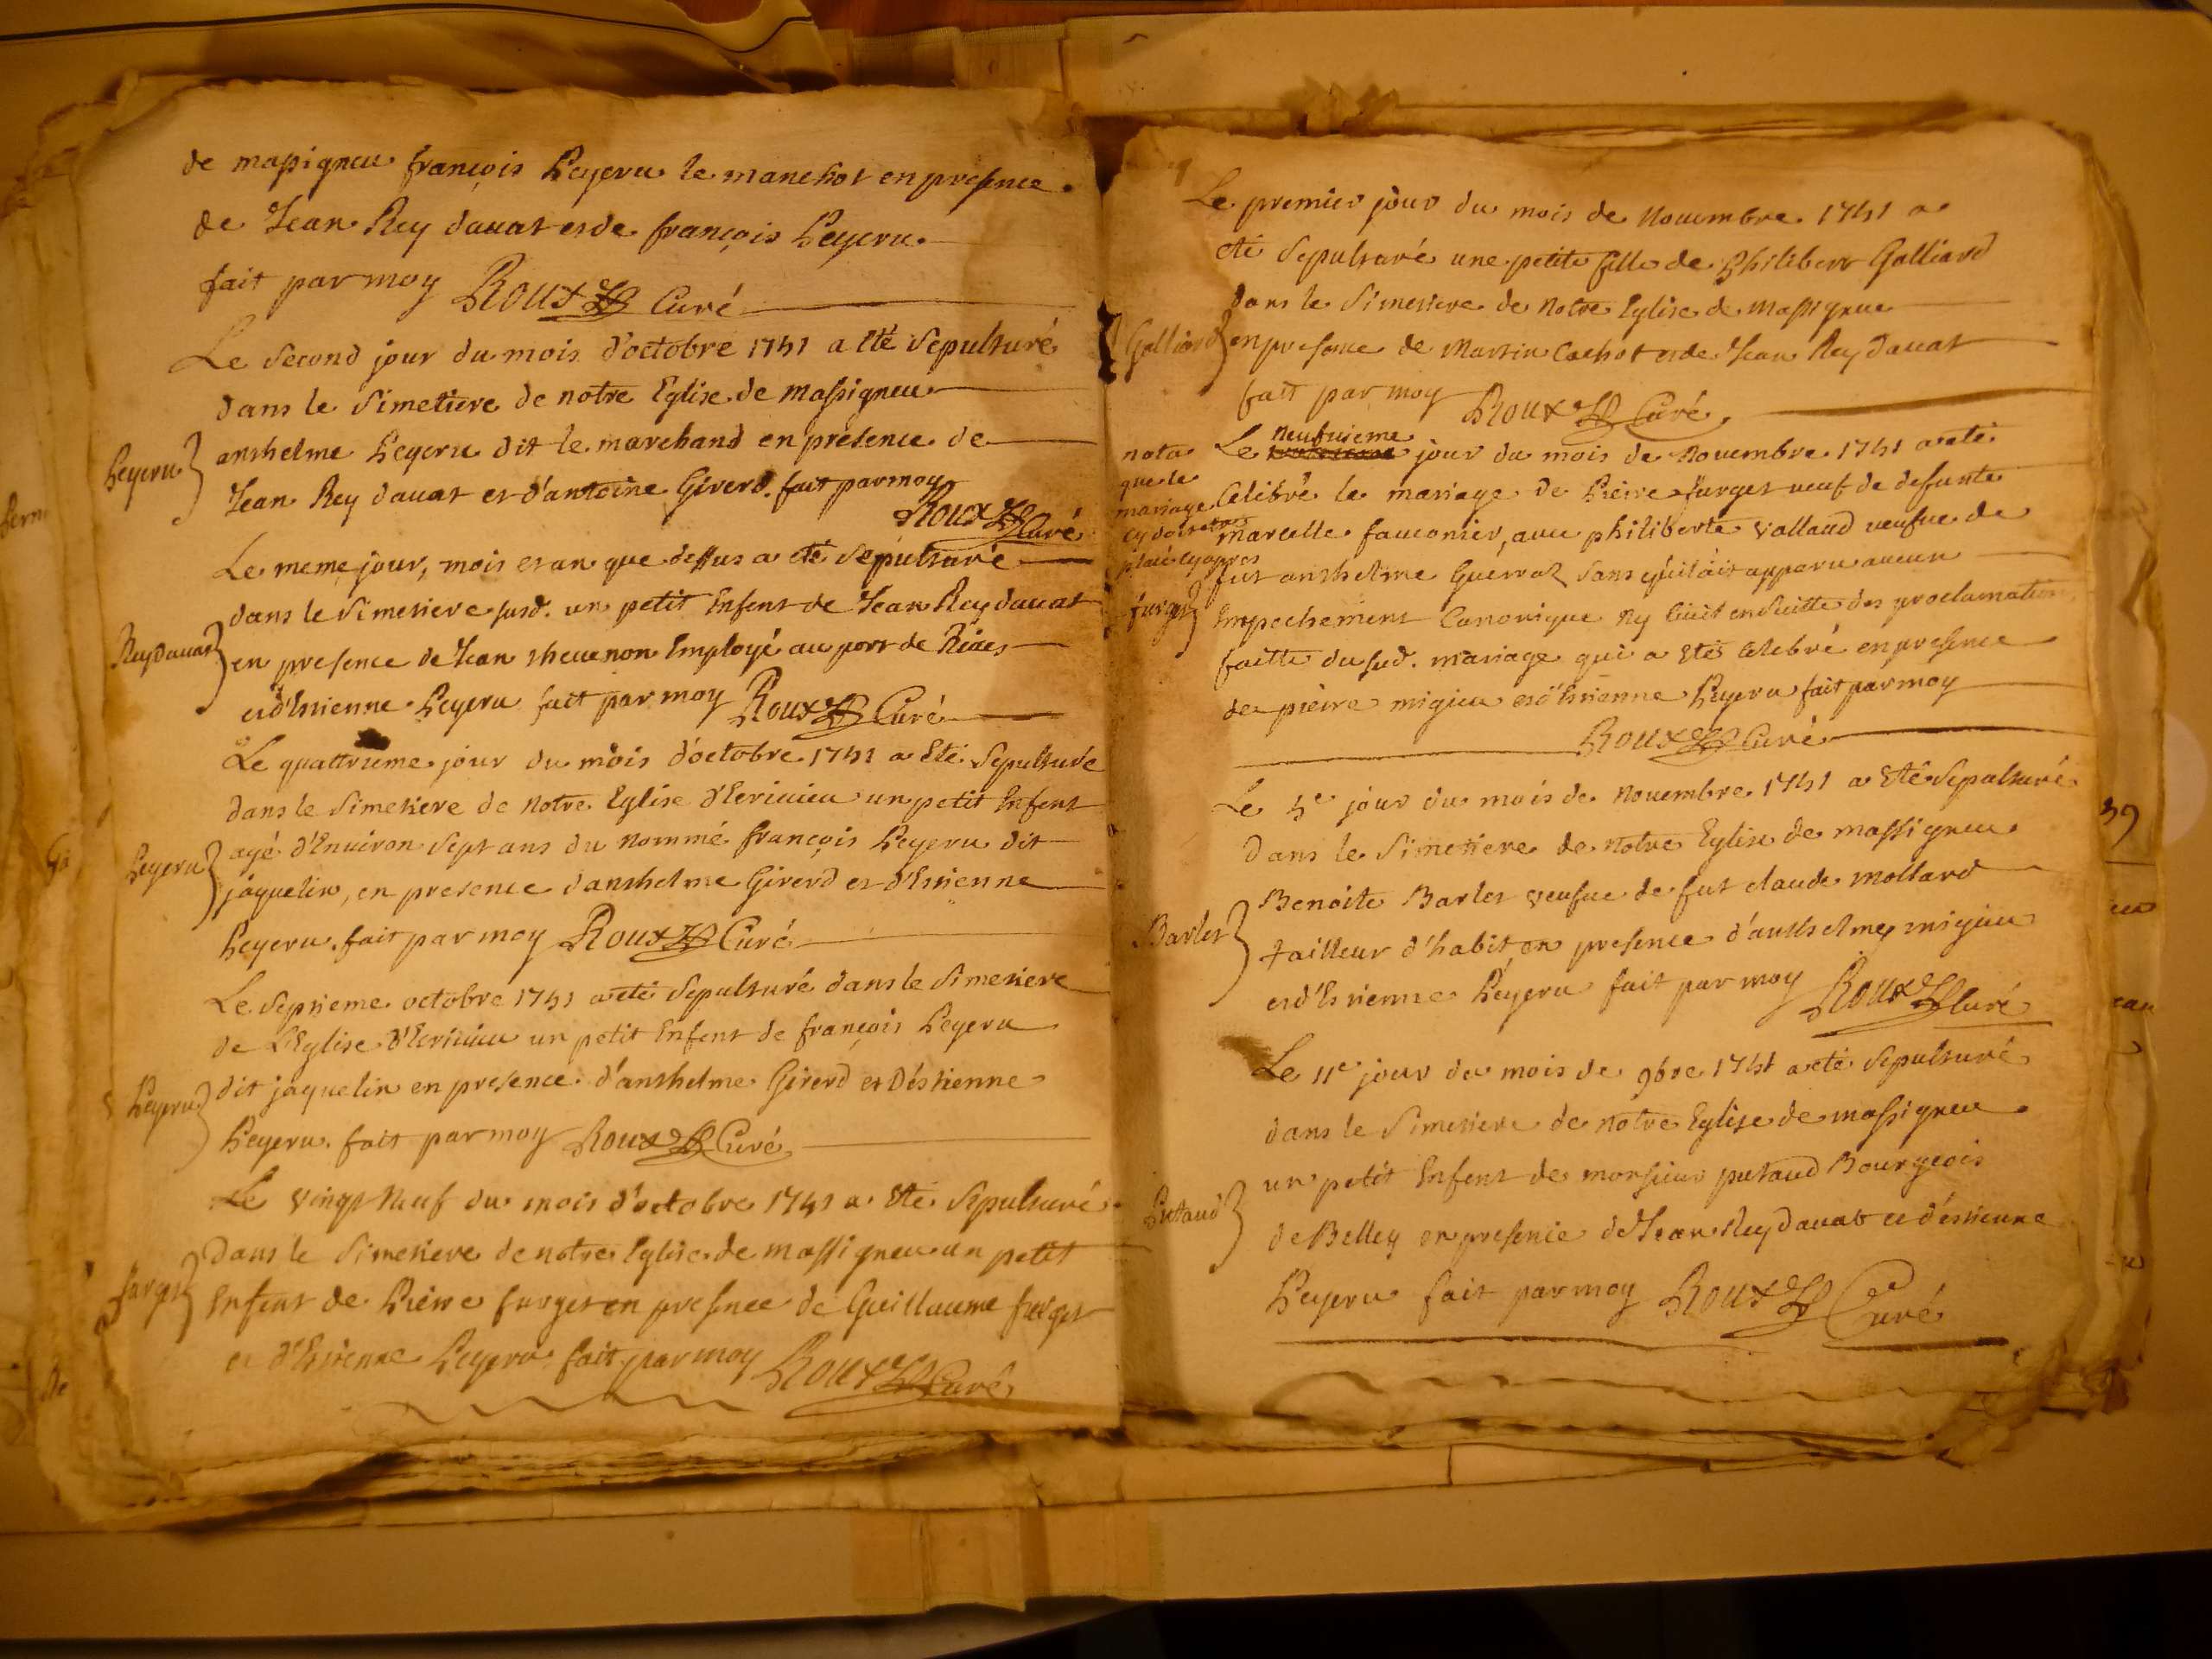 de massigneu françois Peyeru le manchot en presence
de Jean Rey davat et de françois Peyeru
fait par moy Roux Curé
Le second jour du mois d'octobre 1741 a eté sepulturé
dans le simetiere de notre Eglise de massigneu
Peyeru
anthelme Peyeru dit le marchand en présence de
Jean Rey davat et d'antoine Girerd. fait par moy
Roux Curé
Le meme jour, mois et an que dessus a eté sepulturé
dans le simetiere susd. un petit Enfent de Jean Rey davat
Rey Davat
en presence de Jean thevenon Employé au port de
et d'Estienne Peyeru fait par moy Roux Curé
Le quattrieme jour du mois d'octobre 1741 a Eté sepulturé
dans le simetiere de notre Eglise d'Ecrivieu un petit Enfent
Peyeru
agé d'Environ sept ans du nommé françois Peyeru dit
jaquelin, en presence d'anthelme Girerd et d'Estienne
Peyeru. fait par moy Roux Curé
Le septieme octobre 1741 a eté sepulturé dans le simetiere
de L'Eglise d'Ecrivieu un petit Enfent de françois Peyeru
Peyeru
dit jaquelin en presence d'anthelme Girerd et d'éstienne
Peyeru. fait par moy Roux Curé
Le vingt neuf du mois d'octobre 1741 a Eté sepulturé
dans le simetiere de notre Eglise de massigneu un petit
furget
Enfent de Pierre furget en presence de Gueillaume furget
et d'Estienne Peyeru fait par moy Roux Curé
Le premier jour du mois de Novembre 1741 a
eté sepulturé une petite fille de Philibert Galliard
dans le simetiere de notre Eglise de Massigneu
Galliard
en presence de Martin Cachot et de Jean Rey davat
fait par moy Roux Curé
nota que le mariage cy placé cy apres
Le neufvieme jour du mois de Novembre 1741 a eté
Celebré le mariage de Pierre furget veuf de defunte
marcelle fauconier, avec philiberte vallaud veufve de
furget
fut anthelme Guerraz sans qu'il ait apparu aucun
Empechement Canonique ny Civil en suitte des proclamations
faitte du sud. mariage qui a eté celebré en presence
de pierre migieu et d'Estienne Peyeru fait par moy
Roux Curé
Le 5e jour du mois de Novembre 1741 a Eté sepulturé
dans le simetiere de notre Eglise de massigneu
Benoite Barlet veufve de fut claude mollard
Barlet
tailleur d'habit, en presence d'anthelme migieu
et d'Estienne Peyeru fait par moy Roux Curé
Le 11e jour du mois de 9bre 1741 a eté sepulturé
dans le simetiere de notre Eglise de massigneu
un petit Enfent de monsieur putaud Bourgeois
Putaud
de Belley en presence de Jean Rey davat et d'éstienne
Peyeru fait par moy Roux Curé